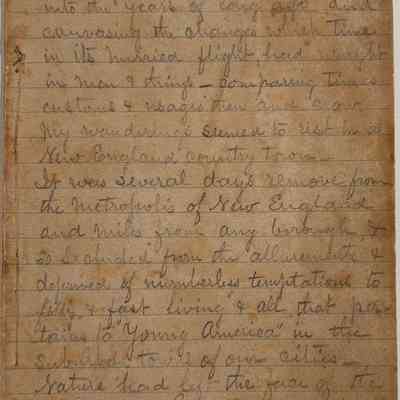 into the years of long ago and
canvasing the changes which time
in its hurried flight, had wrought
in men & things — comparing times
customs & usages then and now
My wanderings seemed to rest in a
New England country town —
It was several days remove from
the Metropolis of New England
and miles from any borough, &
so secluded from the allurements &
deprived of numberless temptations to
& fast living & all that per-
tains to "Young America" in the
suburbs of our cities —
Nature had left the face of the